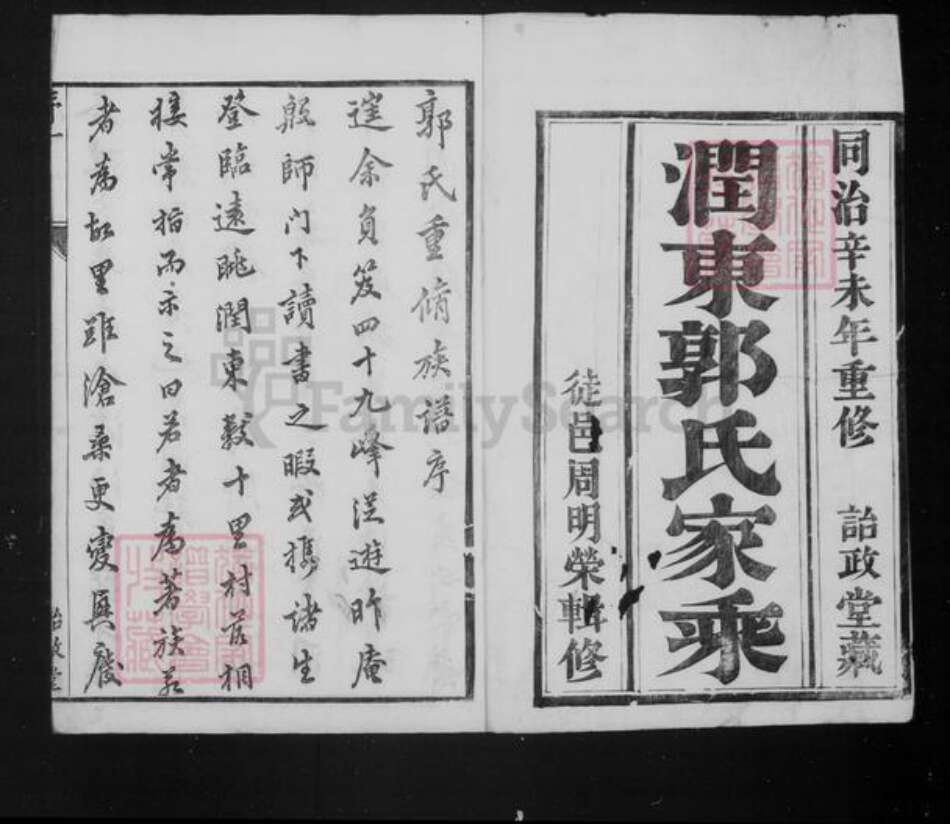 同治辛未年重修 詒政堂藏
潤東郭氏家乘
徒邑周明榮輯修
郭氏重脩族譜序
余負笈四十九峰從遊昨庵
師門下讀書之暇或攜諸生
登臨遠眺潤東數十里村落相
接常指而示之曰若者為著族若
者為故里雖滄桑更變興廢
序一
詒政堂
FamilySearch